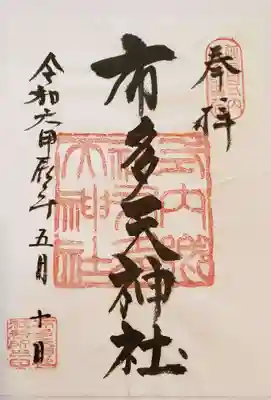 奉拝
布多天神社
令和六甲辰年五月十日